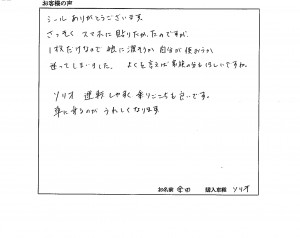 お客様の声
シール ありがとうございます。
さっそく スマホに貼りたかったのですが、
1枚だけなので 娘に譲ろうか 自分が使おうか
迷ってしまいました。 よくを言えば 家族の分もほしいですね。
ソリオ 運転しやすく 乗りごこちも良いです。
車に乗るのが うれしくなります
お名前 金田 購入車種 ソリオ